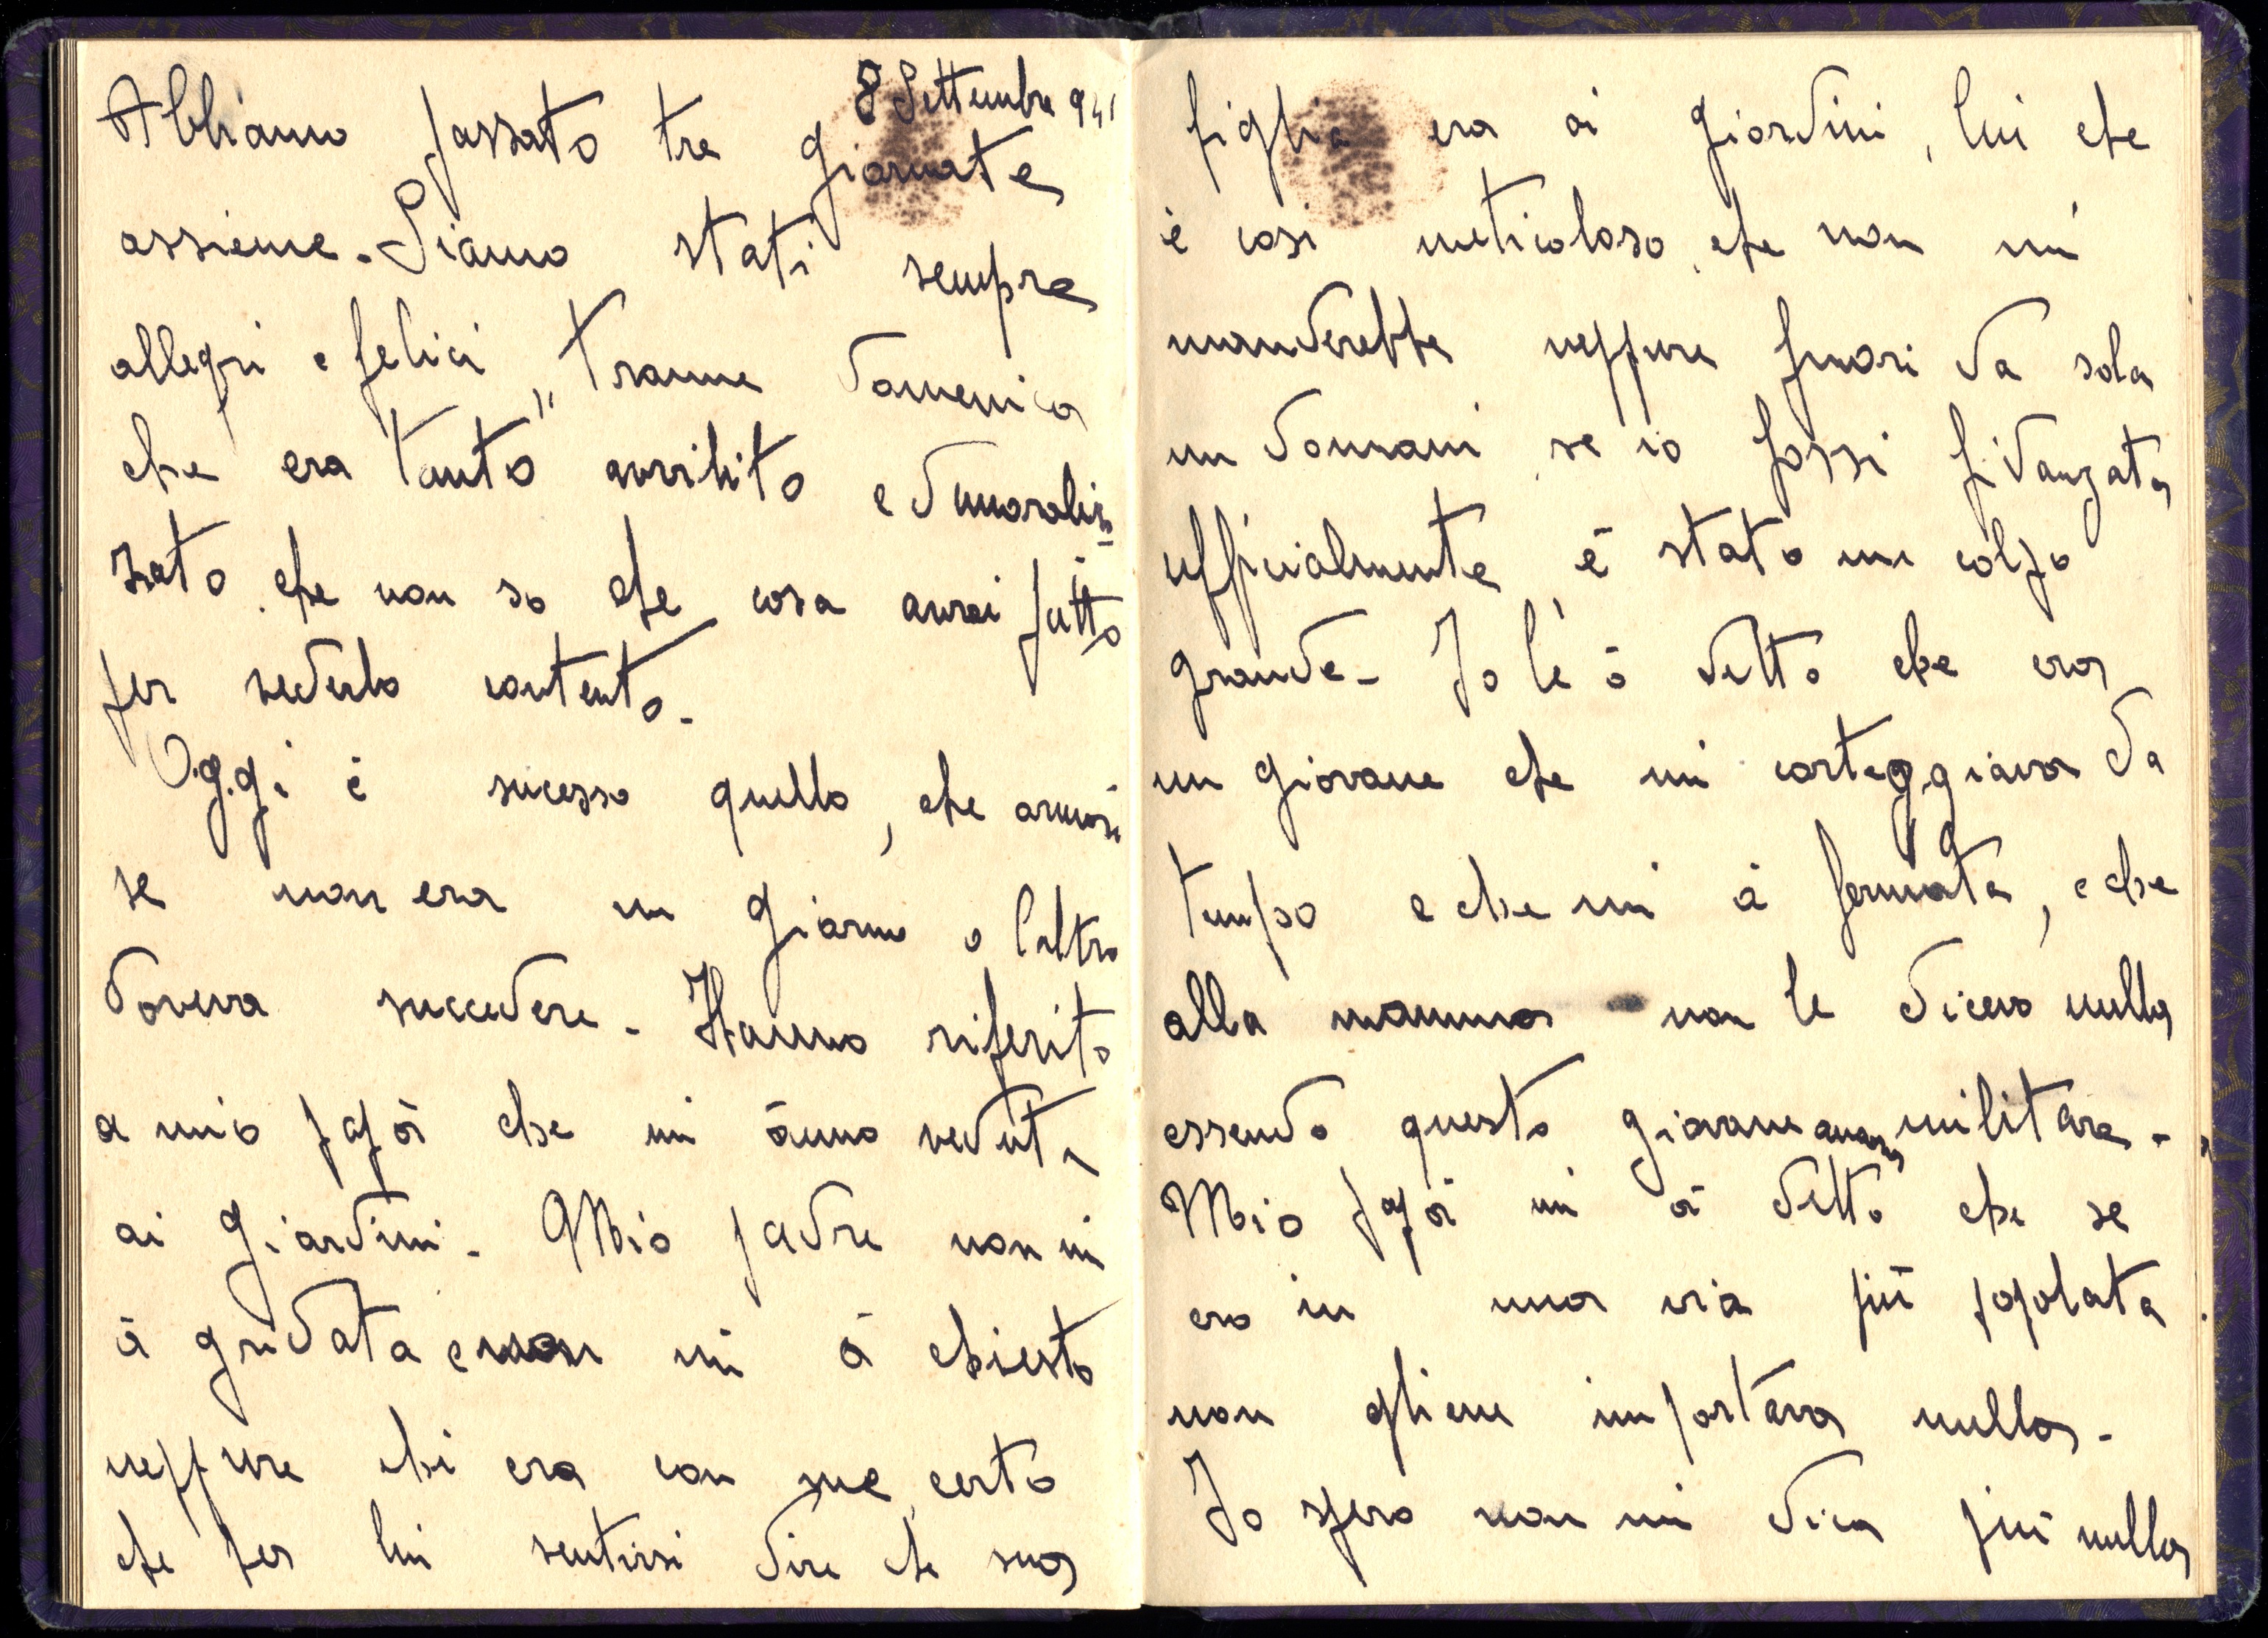 8 Settembre 941
Abbiamo passato tre giornate
assieme. Siamo stati sempre
allegri e felici, "tranne domenica
che era tanto" avvilito e dmoraliz=
zato che non so che cosa avrei fatto
per vederlo contento.
Oggi è sucesso quello, che ormai
se non era un giorno o l'altro
doveva succedere. Hanno riferito
a mio papà che mi ànno veduta
ai giardini. Mio padre non mi
à gridata e non mi à chiesto
neppure chi era con me, certo
che per lui sentirsi dire che sua
figlia era ai giardini, lui che
è così meticoloso, che non mi
manderebbe neppure fuori da sola
un domani se io fossi fidanzata
ufficialmente, è stato un colpo
grande. Io le ò detto che era
un giovane che mi corteggiava da
tempo e che mi à fermata, e che
alla mamma non le dicevo nulla
essendo questo giovane militare.
Mio papà mi à detto che se
ero in una via più popolata
non gliene importava nulla.
Io spero non mi dica più nulla